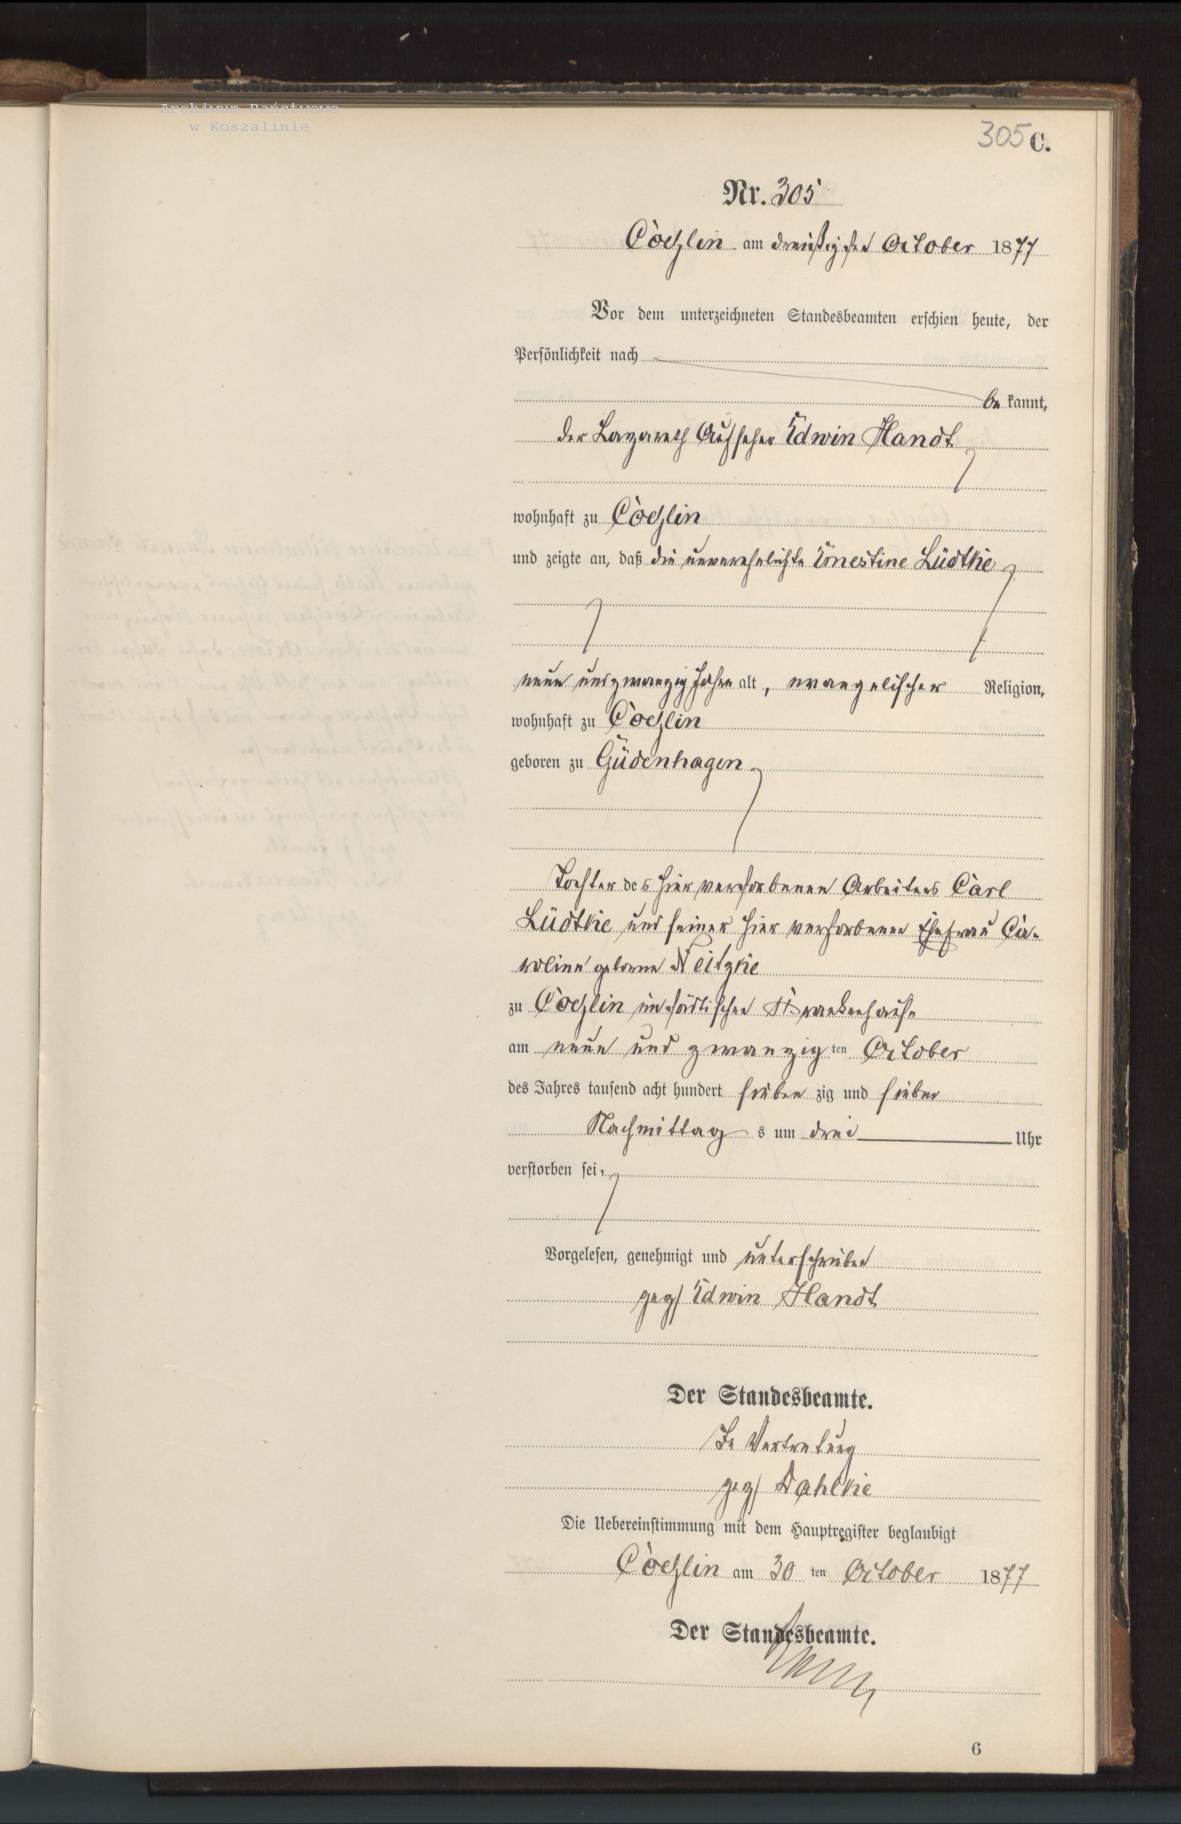 Archiwum Państwowe
w Koszalinie
305 C.
Nr. 305
Cöslin am dreißigsten October 1877
Vor dem unterzeichneten Standesbeamten erschien heute, der
Persönlichkeit nach
be kannt,
der Lazareth Aufseher Edwin Handt
wohnhaft zu Cöslin
und zeigte an, daß die unverehelichte Ernestine Lüdtke
neun und zwanzig Jahre alt, evangelischer Religion,
wohnhaft zu Cöslin
geboren zu Güdenhagen
Tochter des hier verstorbenen Arbeiters Carl
Lüdtke und seiner hier verstorbenen Ehefrau Ca-
roline geborne Neitzke
zu Cöslin im städtischen Krankenhause
am neun und zwanzig ten October
des Jahres tausend acht hundert sieben zig und sieben
Nachmittag s um drei Uhr
verstorben sei,
Vorgelesen, genehmigt und unterschrieben
gez. Edwin Handt
Der Standesbeamte.
In Vertretung
gez. Dahlke
Die Uebereinstimmung mit dem Hauptregister beglaubigt
Cöslin am 30 ten October 1877
Der Standesbeamte.
6